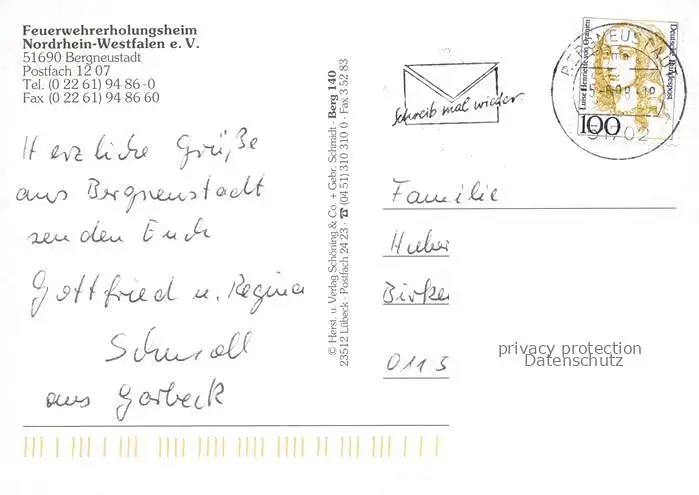 Feuerwehrerholungsheim
Nordrhein-Westfalen e. V.
51690 Bergneustadt
Postfach 12 07
Tel. (0 22 61) 94 86-0
Fax (0 22 61) 94 86 60
Herzliche Grüße
aus Bergneustadt
senden Euch
Gottfried u. Regina
Schmoll
aus Garbeck
© Herst. u. Verlag Schöning & Co. + Gebr. Schmidt · Berg 140
23512 Lübeck · Postfach 24 23 · ☎ (04 51) 310 310 0 · Fax 3 52 83
Schreib mal wieder
BERGNEUSTADT
51702
Luise Henriette von Oranien
Deutsche Bundespost
100
Familie
Huber
Birke
0113
privacy protection
Datenschutz